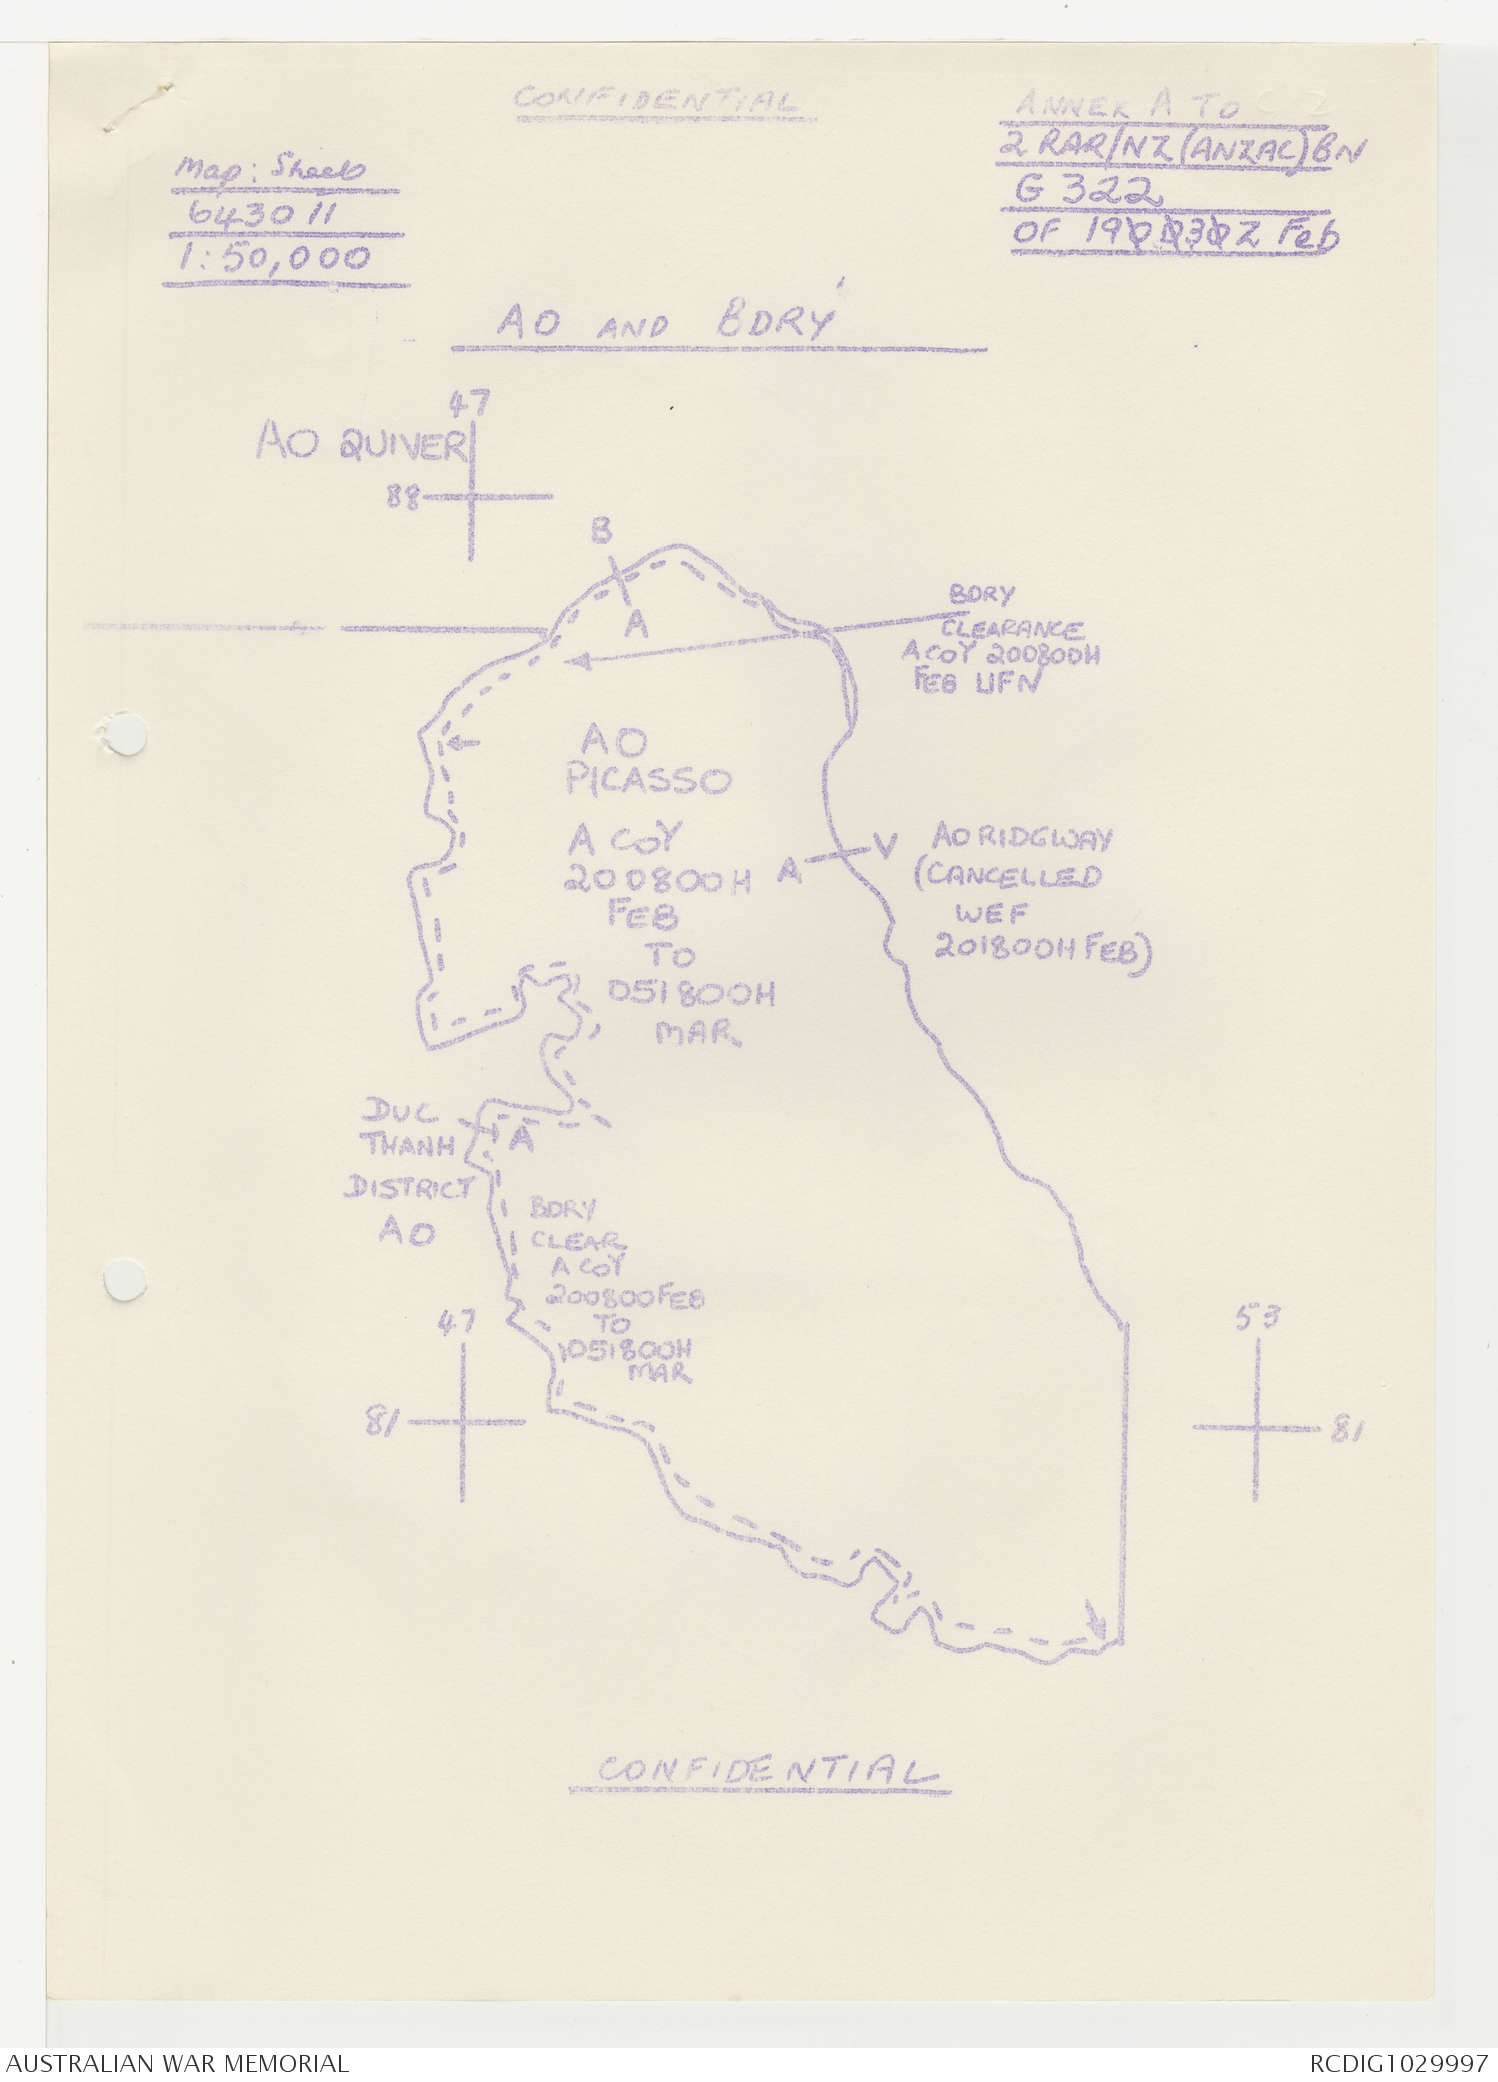 CONFIDENTIAL
ANNEX A TO
2 RAR/NZ (ANZAC) BN
G 322
OF 190030Z Feb
Map: Sheets
6430 11
1:50,000
AO AND BDRY
47
AO QUIVER
88
B
A
BDRY
CLEARANCE
A COY 200800H
FEB UFN
AO
PICASSO
A COY
200800H
FEB
TO
051800H
MAR
A
V
AO RIDGWAY
(CANCELLED
WEF
201800H FEB)
DUC
THANH
DISTRICT
AO
A
BDRY
CLEAR
A COY
200800 FEB
TO
051800H
MAR
47
81
53
81
CONFIDENTIAL
AUSTRALIAN WAR MEMORIAL
RCDIG1029997